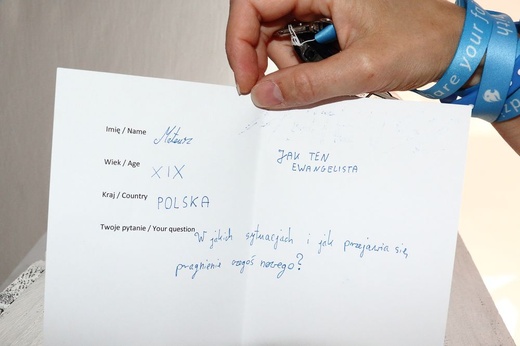 Imię / Name Mateusz
JAK TEN
EWANGELISTA
Wiek / Age XIX
Kraj / Country POLSKA
Twoje pytanie / Your question W jakich sytuacjach i jak przejawia się
pragnienie czegoś nowego?
are your f